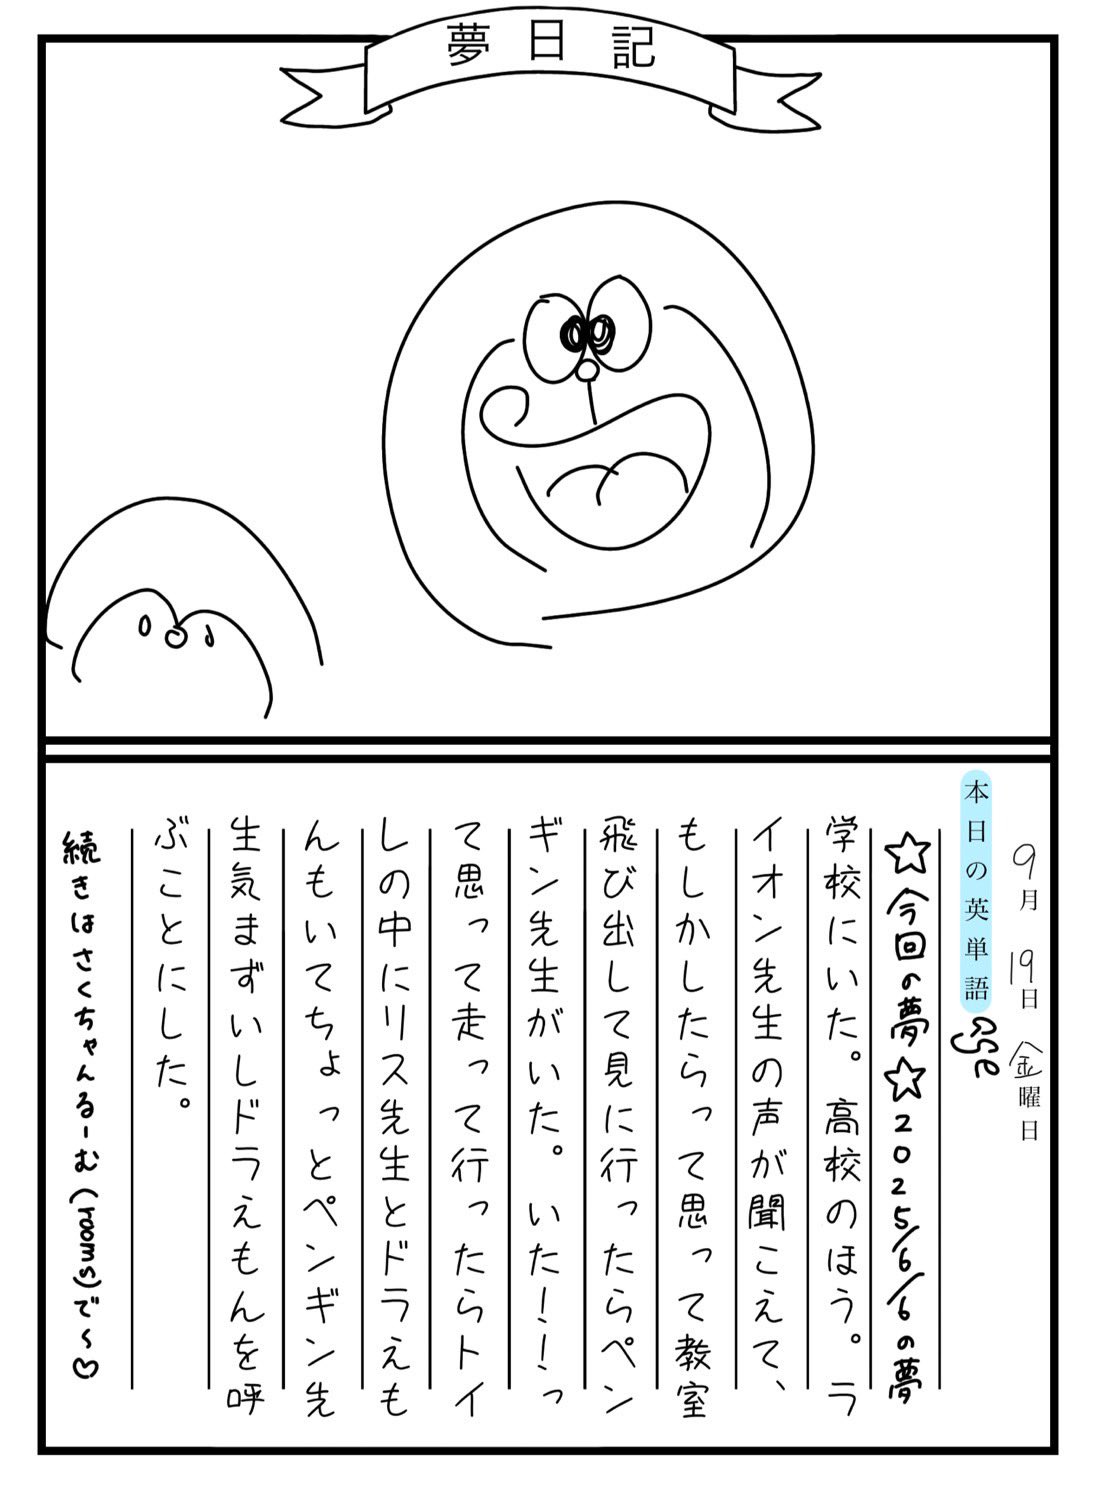 夢日記
9月19日金曜日
本日の英単語 age
☆今回の夢☆2025/6/6の夢
学校にいた。高校のほう。ラ
イオン先生の声が聞こえて、
もしかしたらって思って教室
飛び出して見に行ったらペン
ギン先生がいた。いた!!っ
て思って走って行ったらトイ
レの中にリス先生とドラえも
んもいてちょっとペンギン先
生気まずいしドラえもんを呼
ぶことにした。
続きはさくちゃんるーむ(rooms)で~♡